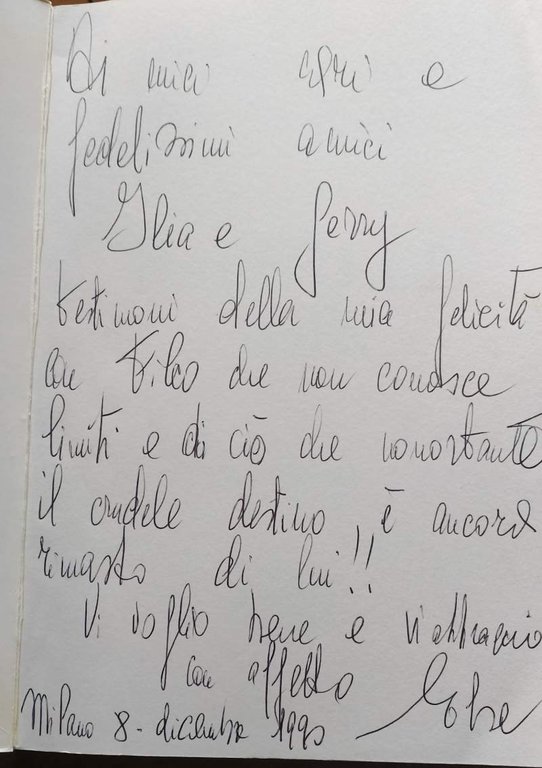 Ai miei cari e
fedelissimi amici
Ilia e Gerry
testimoni della mia felicità
con che non conosce
limiti e di ciò che nonostante
il crudele destino, è ancora
rimasto di lui!!
Vi voglio bene e vi abbraccio
con affetto
Milano 8 - dicembre 1990